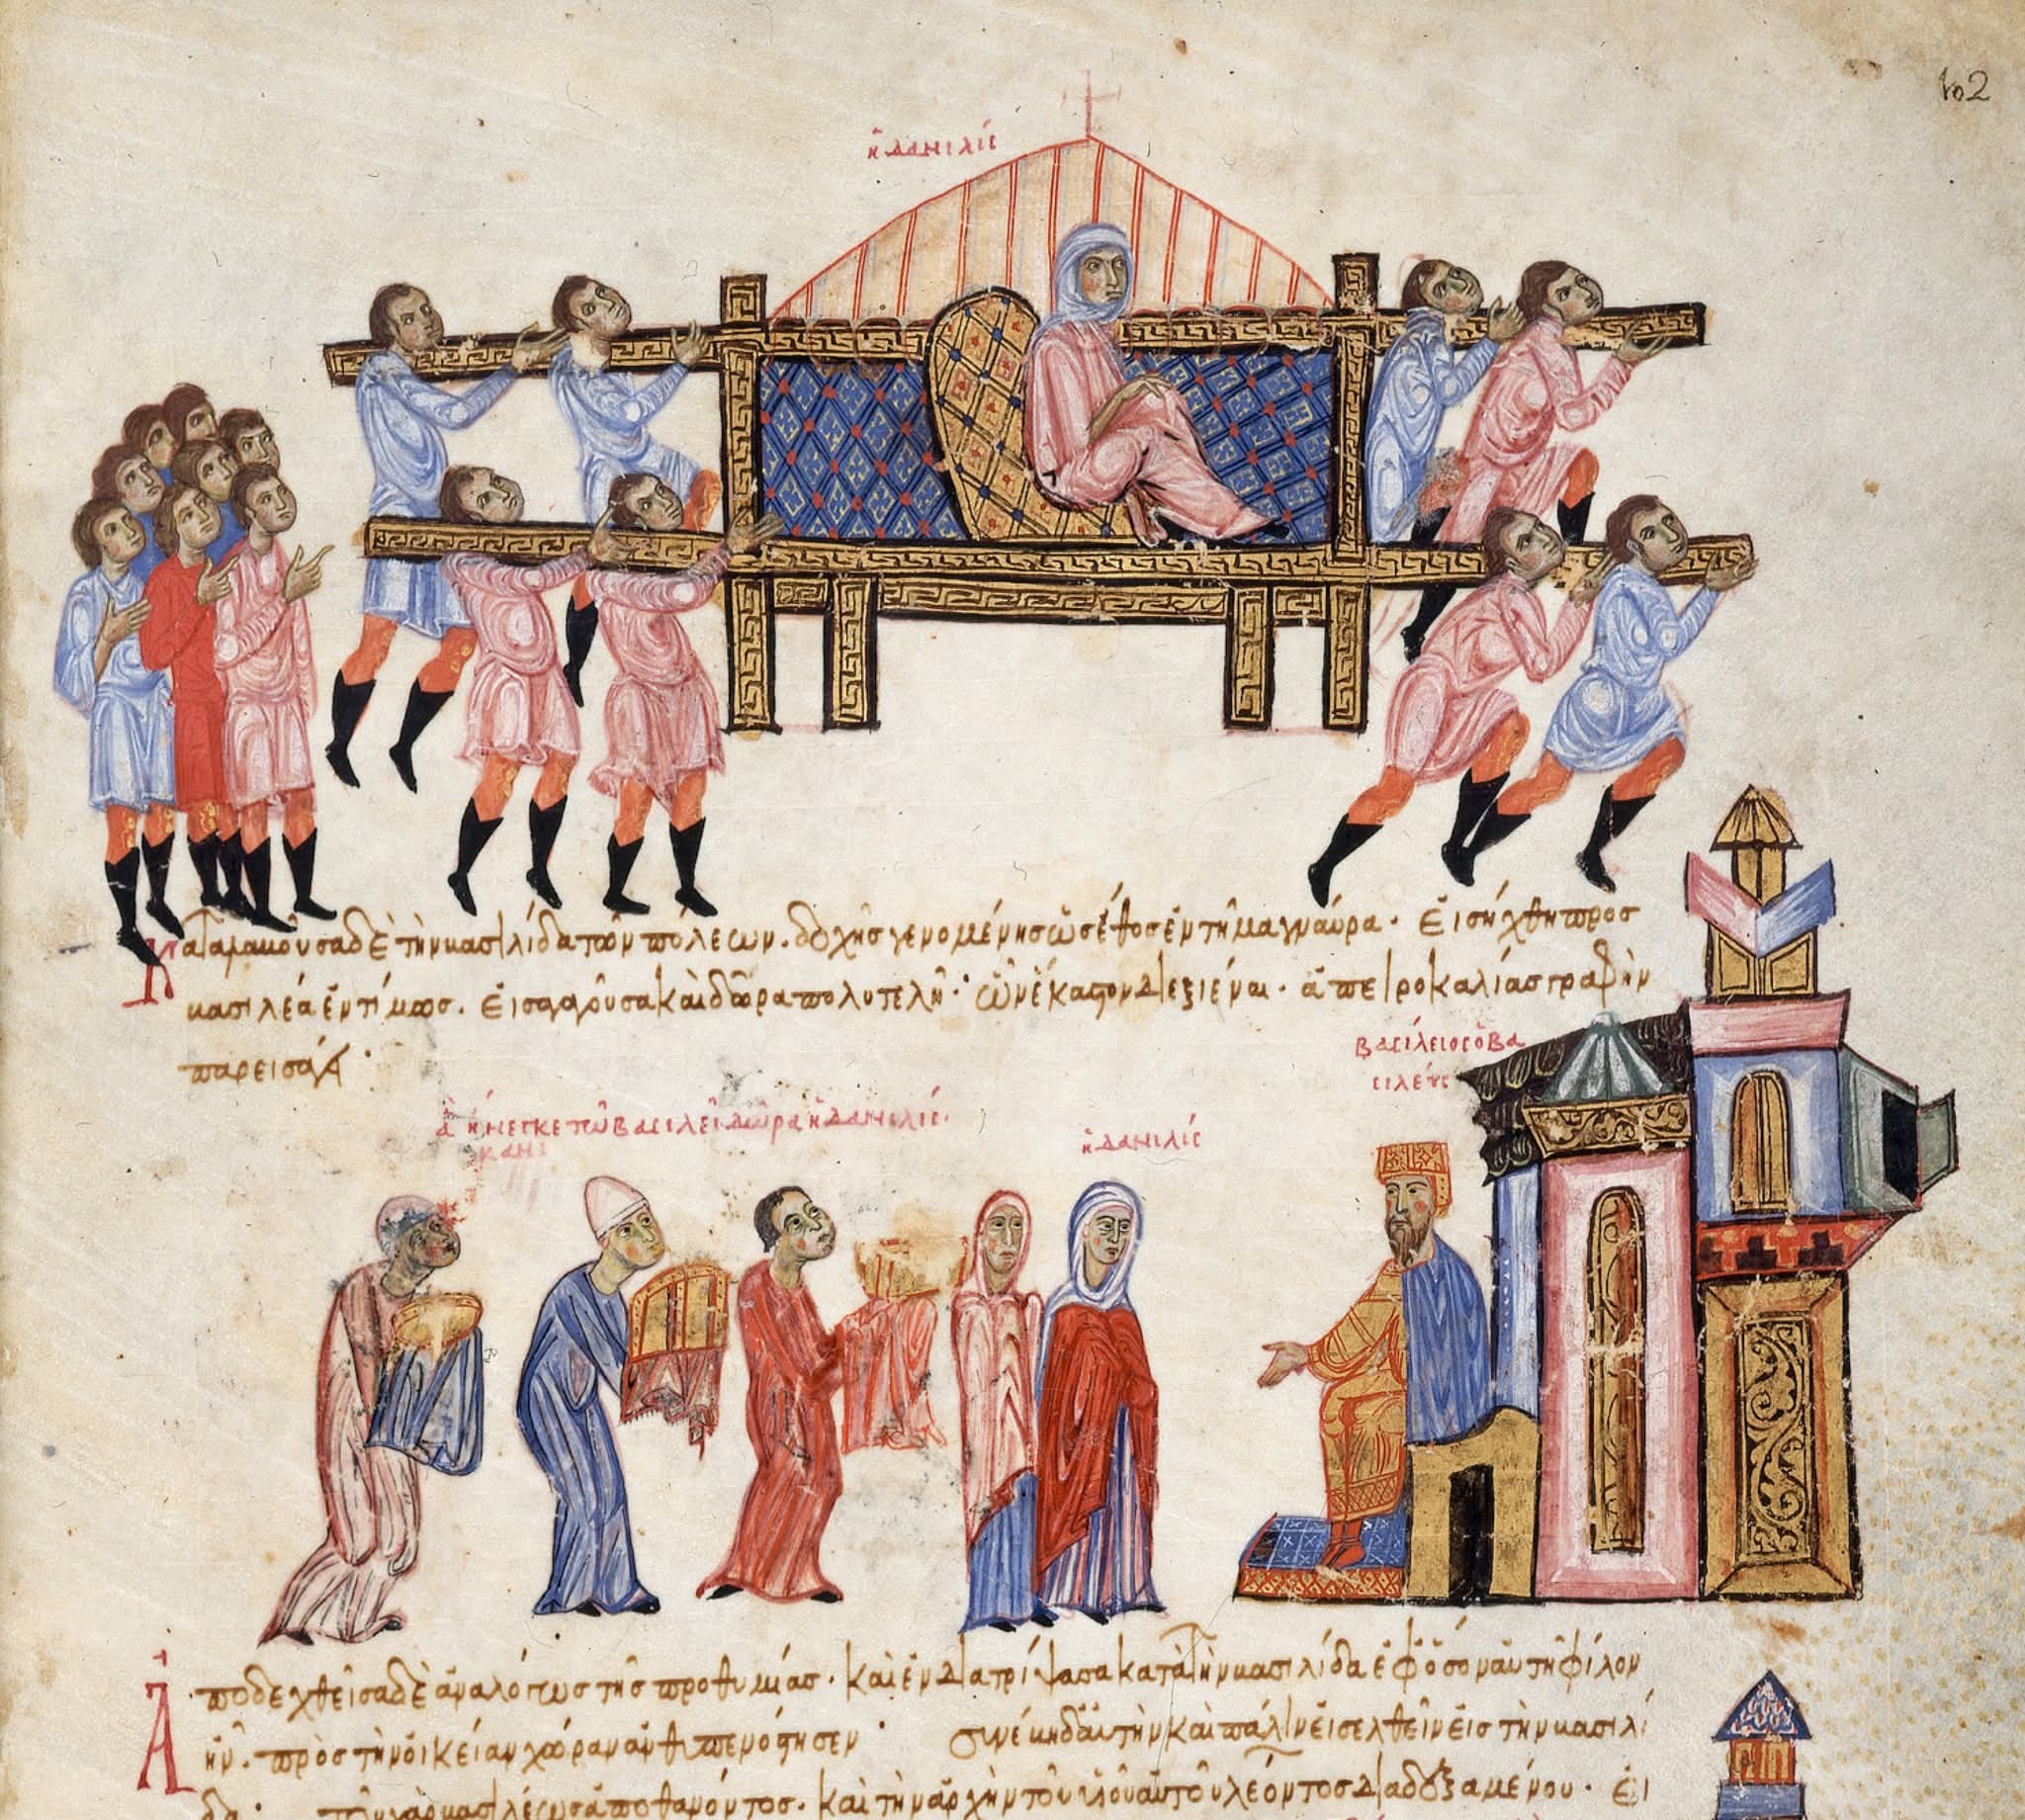 102
ἡ Δανιλίς
Καταλαβοῦσα δὲ τὴν βασιλίδα τῶν πόλεων. δοχῆς γενομένης ὡς ἔθος ἐν τῇ μαγναύρα. εἰσήχθη πρὸς
βασιλέα ἐντίμως. εἰσάγουσα καὶ δῶρα πολυτελῆ. ὧν ἕκαστον διεξιέναι. ἀπειροκαλίας γραφὴν
παρεισάγει
βασίλειος ὁ βα
σιλεύς
ἃ ἤνεγκε τῶ βασιλεῖ δῶρα ἡ Δανιλίς.
ἡ Δανιλίς
Ἀποδεχθεῖσα δὲ ἀναλόγως τῆς προθυμίας. καὶ ἐνδιατρίψασα κατὰ τὴν βασιλίδα ἐφ' ὅσον αὐτῇ φίλον
ἦν. πρὸς τὴν οἰκείαν χώραν αὖθις ὑπενόστησεν. συνέβη δὲ αὐτὴν καὶ πάλιν εἰσελθεῖν εἰς τὴν βασιλί
δα. τοῦ γὰρ βασιλέως ἀποθανόντος. καὶ τὴν ἀρχὴν τοῦ υἱοῦ αὐτοῦ λέοντος διαδεξαμένου.